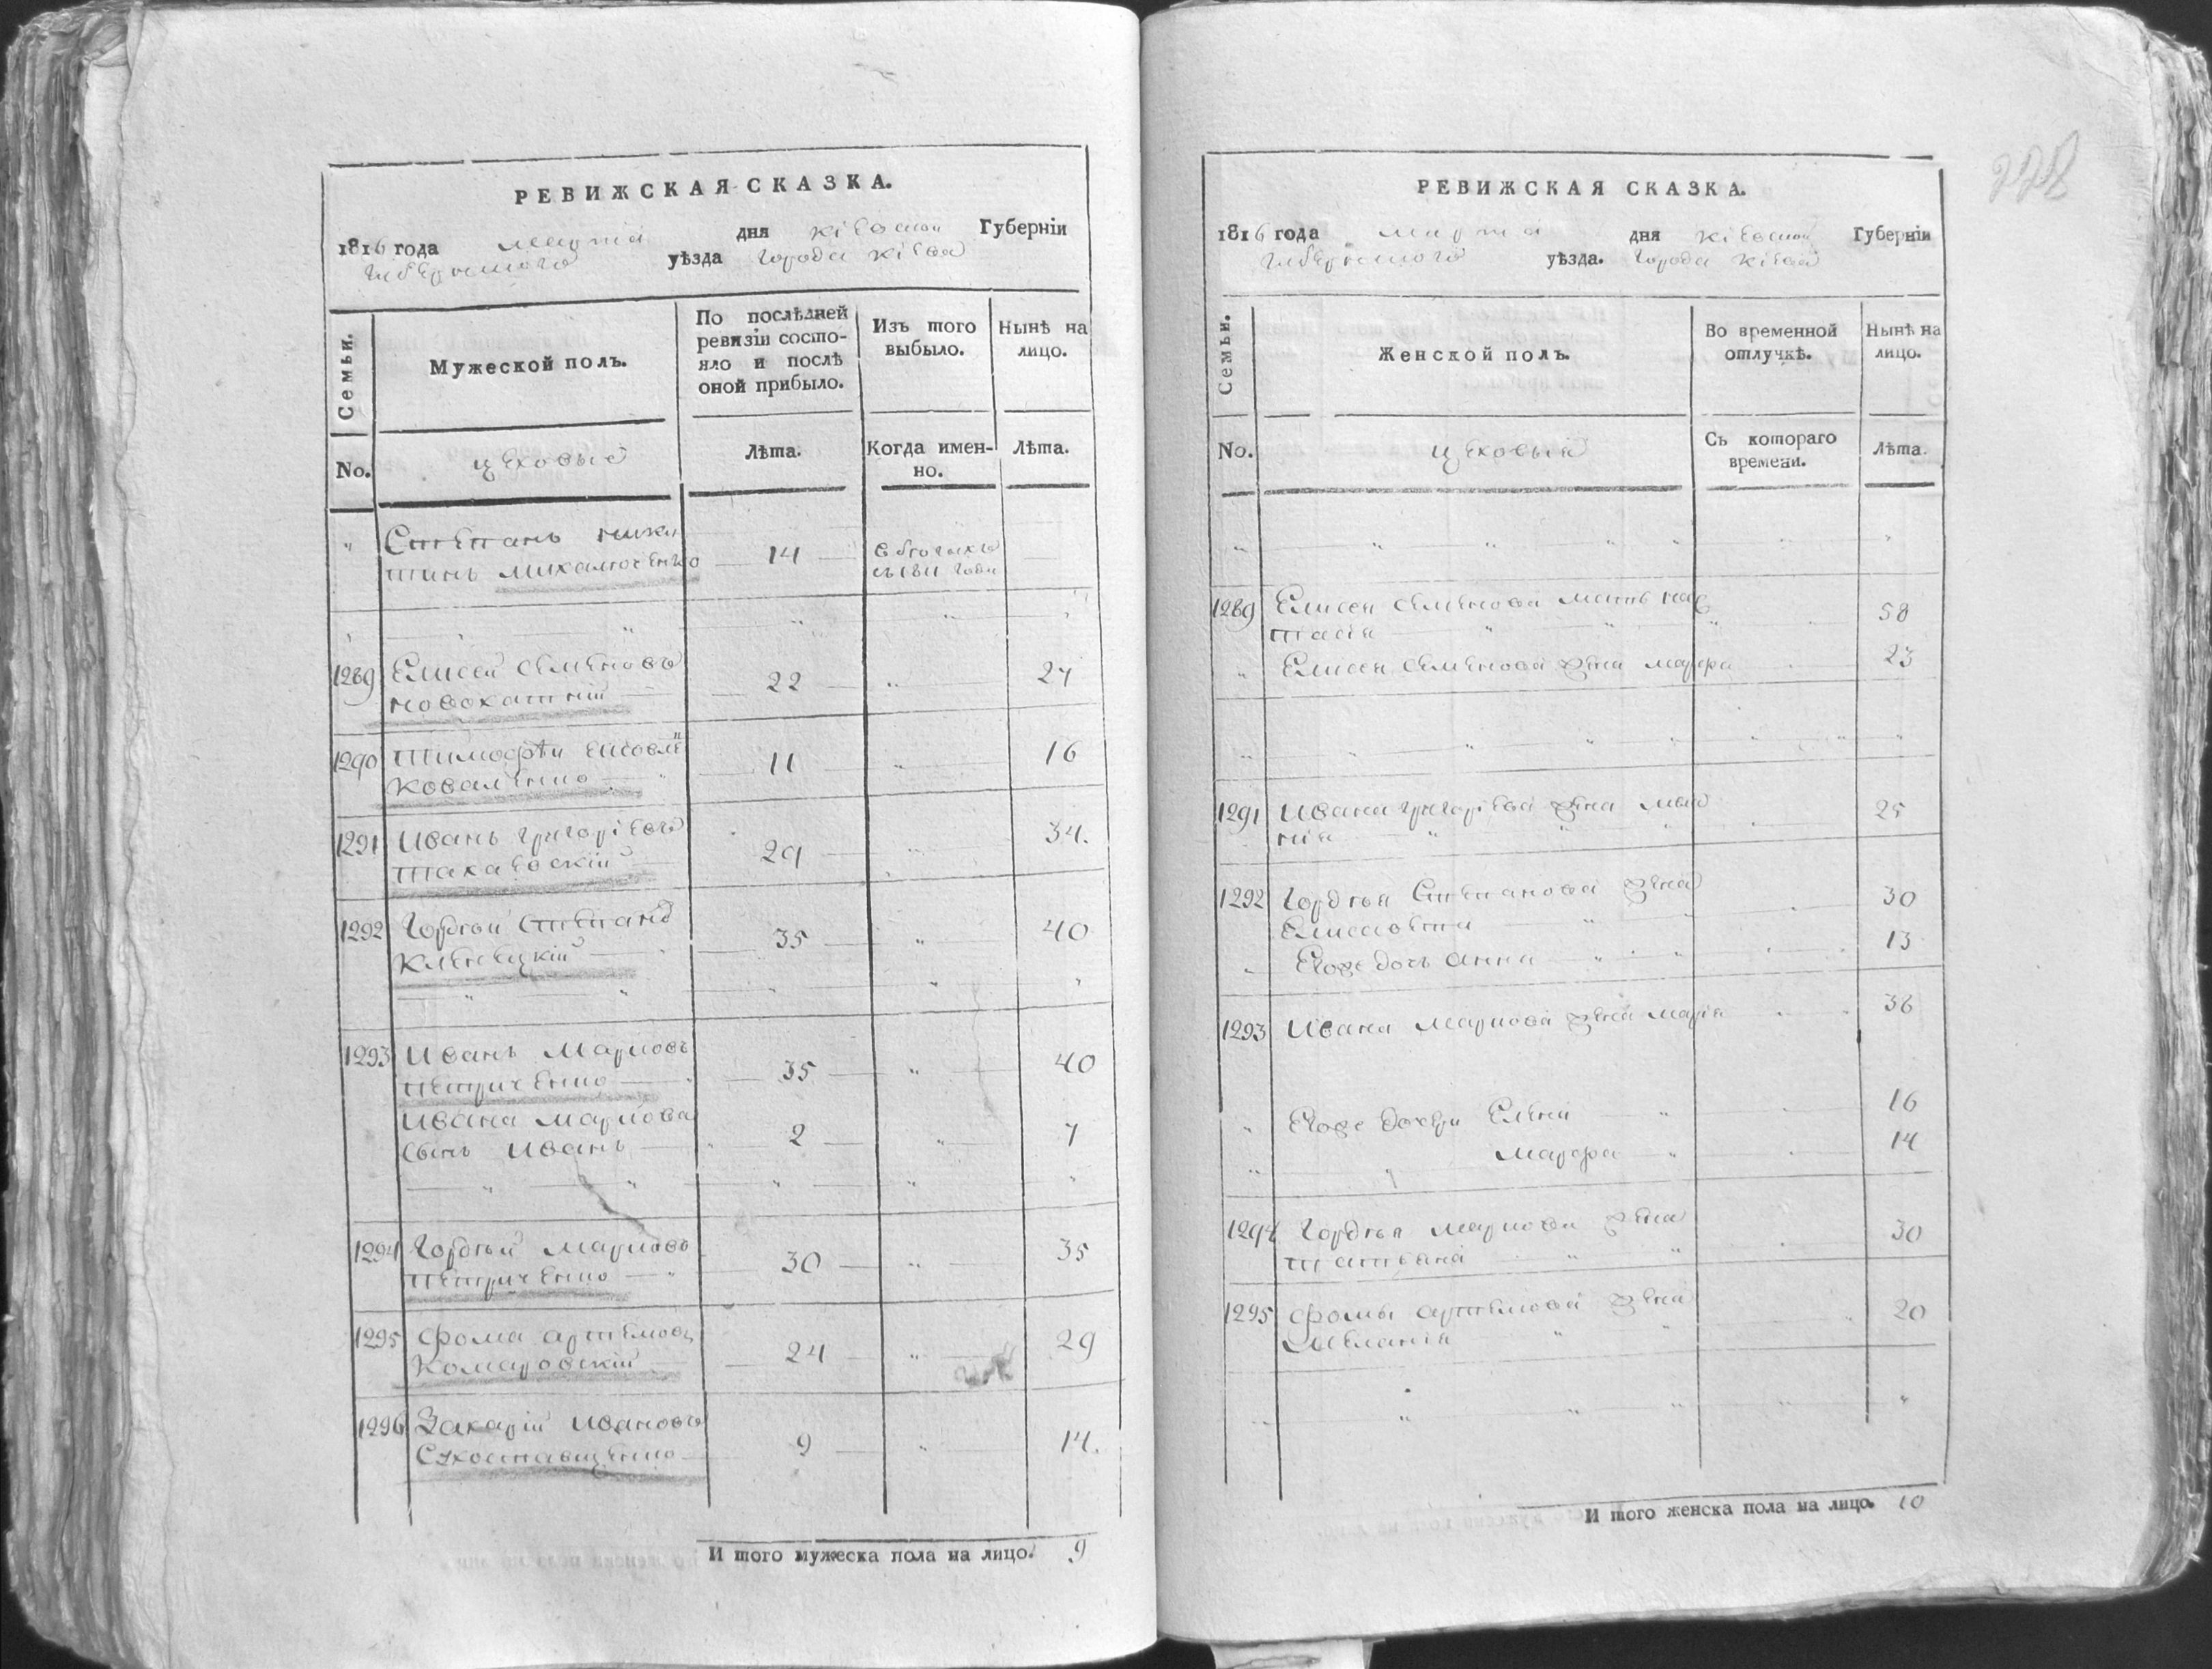 РЕВИЖСКАЯ СКАЗКА.
1816 года марта дня Кіевской Губерніи
Губернского уѣзда Города Кіева
Семьи.
Мужеской полъ.
По послѣдней ревизіи состо-
яло и послѣ
оной прибыло.
Изъ того
выбыло.
Нынѣ на
лицо.
No.
цеховые
Лѣта.
Когда имен-
но.
Лѣта.
" Степанъ Ники
тинъ Михалюченко 14 въ бегахъ
съ 1811 года
1289 Елисей Семеновъ
Новохатній 22 " 27
1290 Тимофѣй
Коваленко 11 " 16
1291 Иванъ Григоріевъ
29 " 34.
1292 Гордѣй Степановъ
Кленецкій 35 " 40
1293 Иванъ Марковъ
Петриченко 35 " 40
Ивана Маркова
сынъ Иванъ 2 " 7
1294 Гордѣй Марковъ
Петриченко 30 " 35
1295 Фома Артемовъ
Комаровскій 24 " 29
1296 Захарій Ивановъ
9 " 14.
И того мужеска пола на лицо. 9
228
РЕВИЖСКАЯ СКАЗКА.
1816 года марта дня Кіевской Губерніи
Губернского уѣзда. Города Кіева
Семьи.
Женской полъ.
Во временной
отлучкѣ.
Нынѣ на
лицо.
No.
цеховыя
Съ котораго
времени.
Лѣта.
1289 Елисея Семенова мать Нас
тасія 58
" Елисея Семенова жена Марфа 23
1291 Ивана Григоріева жена
25
1292 Гордѣя Степанова жена
Елисавета 30
" Егоже дочь Анна 13
1293 Ивана Маркова жена Марія 36
" Егоже дочери Елена 16
Марфа 14
1294 Гордѣя Маркова жена
Татьяна 30
1295 Фомы Артемова жена
Меланія 20
И того женска пола на лицо. 10